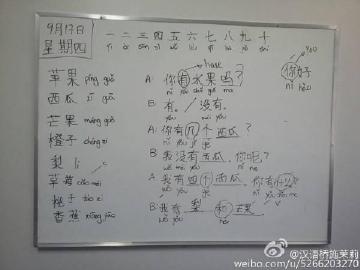 9月17日
星期四
一 二 三 四 五 六 七 八 九 十
yī èr sān sì wǔ liù qī bā jiǔ shí
苹果 píng guǒ
西瓜 xī guā
芒果 máng guǒ
橙子 chéng zi
梨 lí
草莓 cǎo méi
桃子 táo zi
香蕉 xiāng jiāo
have
A: 你有水果吗?
nǐ yǒu shuǐ guǒ ma
B: 有。/ 没有。
yǒu méi yǒu
A: 你有几个西瓜?
nǐ yǒu jǐ gè
B: 我没有西瓜,你呢?
wǒ méi yǒu nǐ ne
A: 我有四个西瓜,你有什么?
wǒ yǒu sì gè nǐ yǒu
B: 我有 梨 和 芒果。
wǒ yǒu hé
you
你好
nǐ hǎo
@汉语桥施茉莉
weibo.com/u/5266203270